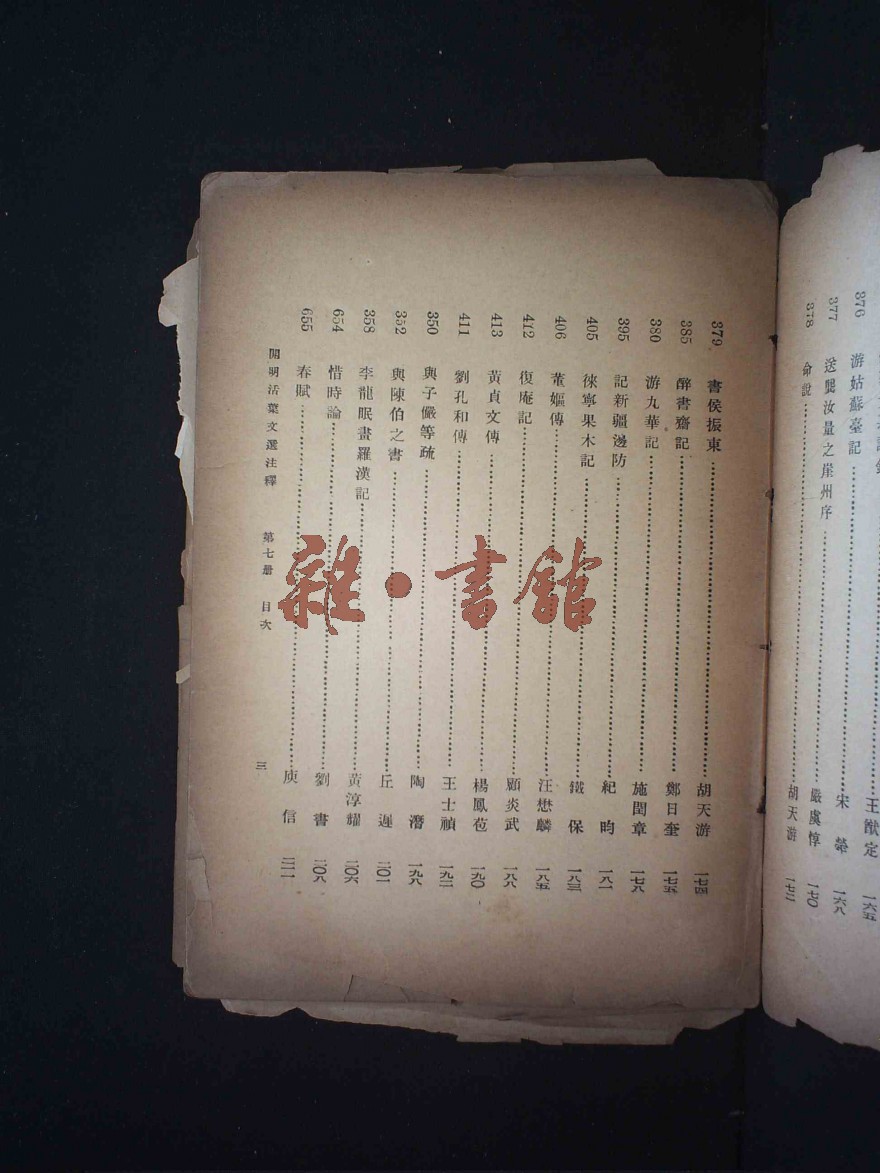 376 游姑蘇臺記 宋犖 一六八
377 送龔汝量之崖州序 嚴虞惇 一七〇
378 命說 胡天游 一七二
王猷定 一六五
379 書侯振東 胡天游 一七四
385 醉書齋記 鄭日奎 一七五
380 游九華記 施閏章 一七八
395 記新疆邊防 紀昀 一八一
405 徠寧果木記 鐵保 一八三
406 董嫗傳 汪懋麟 一八五
412 復庵記 顧炎武 一八八
413 黃貞文傳 楊鳳苞 一九〇
411 劉孔和傳 王士禎 一九二
350 與子儼等疏 陶潛 一九八
352 與陳伯之書 丘遲 二〇一
358 李龍眠畫羅漢記 黃淳耀 二〇六
654 惜時論 劉書 二〇八
655 春賦 庾信 二一一
開明活葉文選注釋 第七册 目次 三
雜·書館